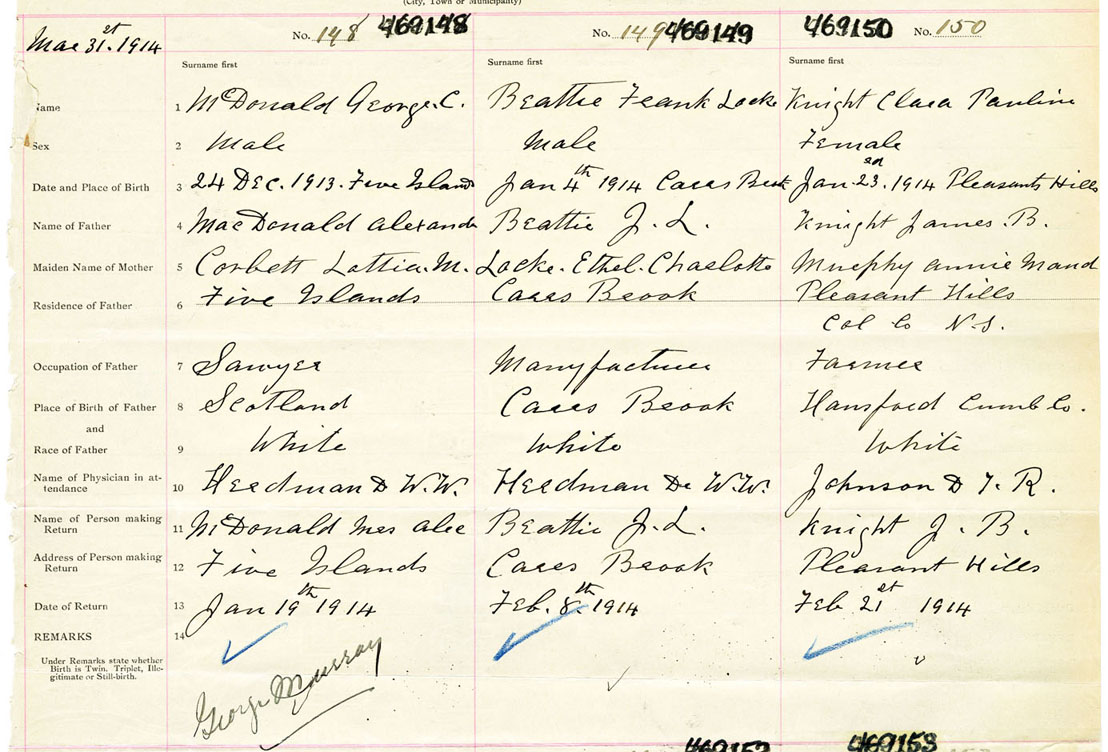 (City, Town or Municipality)
Mar 31st. 1914
No. 148 469148
No. 149 469149
469150 No. 150
Surname first Surname first Surname first
Name 1 McDonald George. C. Beattie Frank Locke Knight Clara Pauline
Sex 2 Male Male Female
Date and Place of Birth 3 24 Dec. 1913. Five Islands Jan 4th 1914 Carrs Brook Jan. 23rd. 1914 Pleasants Hills
Name of Father 4 MacDonald Alexander Beattie J. L. Knight James. B.
Maiden Name of Mother 5 Corbett Lottia. M. Locke. Ethel. Charlotte Murphy Annie Maud
Residence of Father 6 Five Islands Carrs Brook Pleasant Hills
Col Co N.S.
Occupation of Father 7 Sawyer Manyfacturer Farmer
Place of Birth of Father 8 Scotland Carrs Brook Hansford Cumb Co.
and
Race of Father 9 White White White
Name of Physician in at-
tendance 10 Herdman Dr W.W. Herdman Dr W.W. Johnson D T. R.
Name of Person making
Return 11 McDonald Mrs Alec Beattie J. L. Knight J. B.
Address of Person making
Return 12 Five Islands Carrs Brook Pleasant Hills
Date of Return 13 Jan 19th 1914 Feb. 8th. 1914 Feb 21st 1914
REMARKS 14
Under Remarks state whether
Birth is Twin, Triplet, Ille-
gitimate or Still-birth.
George Murray
469152 469153